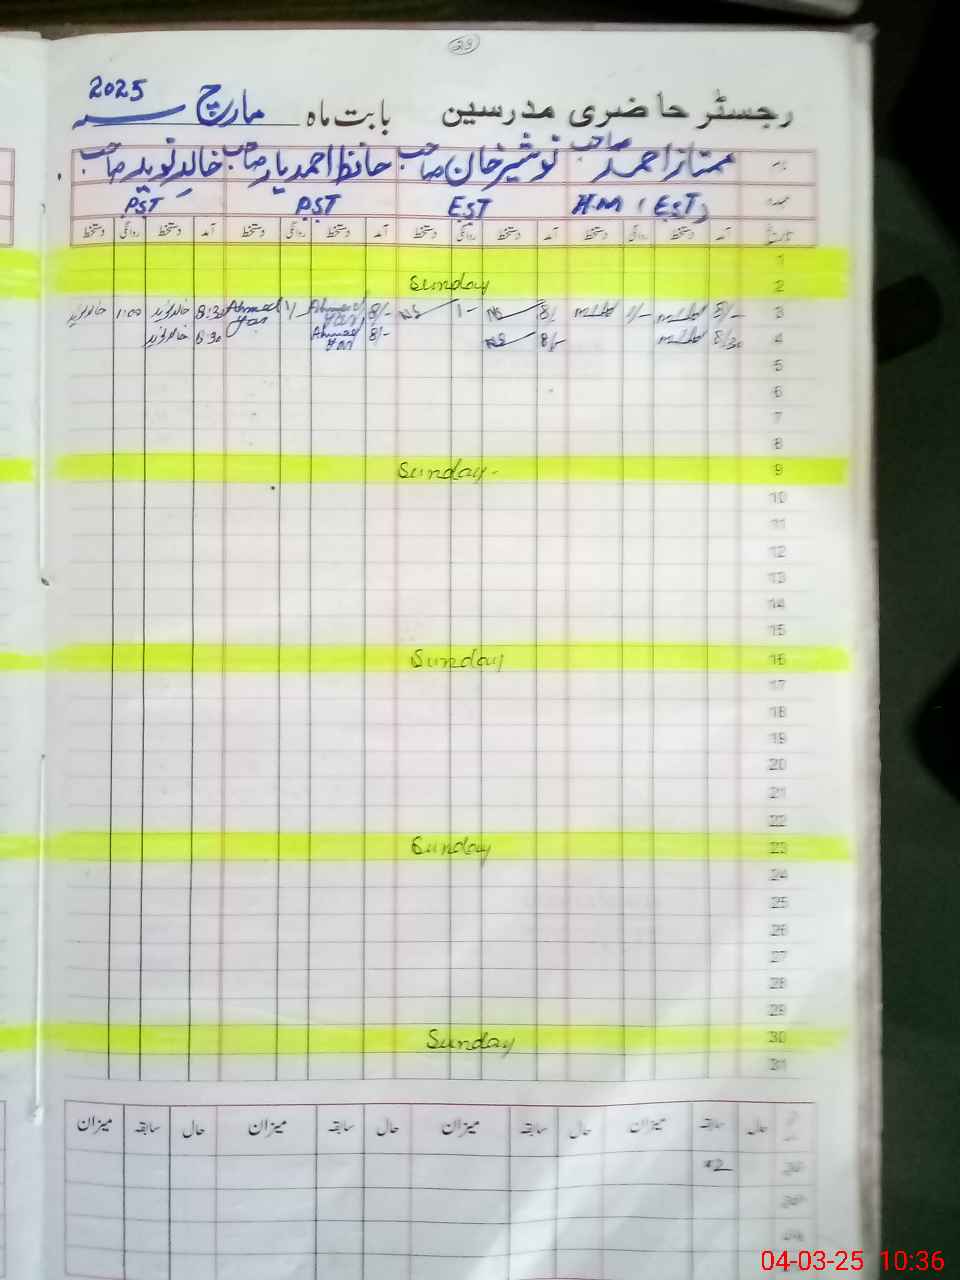 29
2025
رجسٹر حاضری مدرسین بابت ماہ مارچ سنہ
نام ممتاز احمد صاحب نوشیر خان صاحب حافظ احمد یار صاحب خالد نوید صاحب
عہدہ H.M (EST) EST PST PST
تاریخ آمد دستخط روانگی دستخط آمد دستخط روانگی دستخط آمد دستخط روانگی دستخط آمد دستخط روانگی دستخط
1
2 Sunday
3 8/- 1/- 8/- NS 1- NS 8/- Ahmad Yar 1/ Ahmad Yar 8:30 خالد نوید 1:00 خالد نوید
4 8/30 8/- NS 8/- Ahmad Yar 8:30 خالد نوید
5
6
7
8
9 Sunday-
10
11
12
13
14
15
16 Sunday
17
18
19
20
21
22
23 Sunday
24
25
26
27
28
29
30 Sunday
31
حال سابقہ میزان حال سابقہ میزان حال سابقہ میزان حال سابقہ میزان
04-03-25 10:36